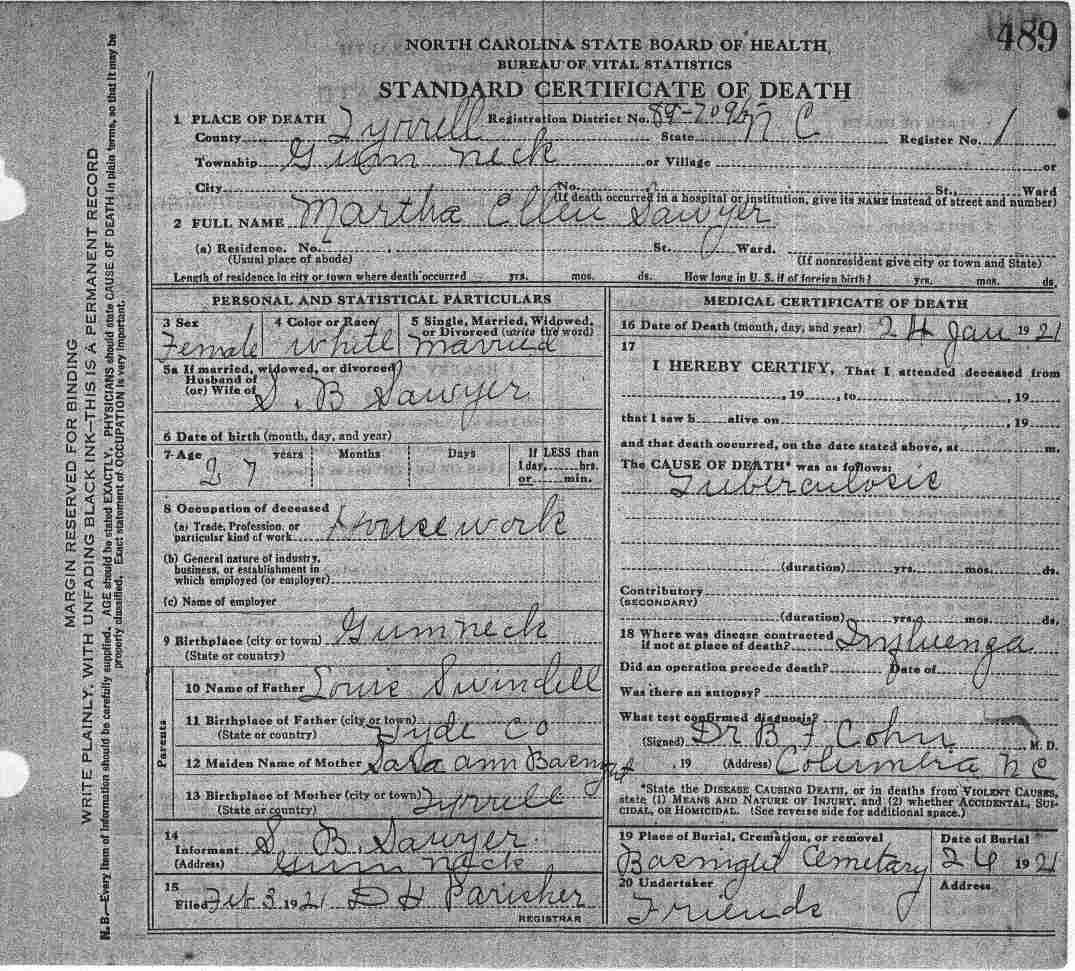 489
NORTH CAROLINA STATE BOARD OF HEALTH
BUREAU OF VITAL STATISTICS
STANDARD CERTIFICATE OF DEATH
1 PLACE OF DEATH Registration District No. 89-7095
County Tyrrell State N C Register No. 1
Township Gum Neck or Village or
City No. St., Ward
(If death occurred in a hospital or institution, give its NAME instead of street and number)
2 FULL NAME Martha Ellen Sawyer
(a) Residence. No. St. Ward.
(Usual place of abode) (If nonresident give city or town and State)
Length of residence in city or town where death occurred yrs. mos. ds. How long in U. S. if of foreign birth? yrs. mos. ds.
PERSONAL AND STATISTICAL PARTICULARS
3 Sex 4 Color or Race 5 Single, Married, Widowed, or Divorced (write the word)
Female White Married
5a If married, widowed, or divorced
Husband of
(or) Wife of S. B Sawyer
6 Date of birth (month, day, and year)
7 Age years Months Days If LESS than
1 day, hrs.
or min.
27
8 Occupation of deceased
(a) Trade, Profession, or
particular kind of work House work
(b) General nature of industry,
business, or establishment in
which employed (or employer)
(c) Name of employer
9 Birthplace (city or town) Gumneck
(State or country)
Parents
10 Name of Father Louis Swindell
11 Birthplace of Father (city or town)
(State or country) Hyde Co
12 Maiden Name of Mother Sara ann Basnight
13 Birthplace of Mother (city or town) Tyrrell
(State or country)
14
Informant S. B. Sawyer
(Address) Gum Neck
15
Filed Feb 3 1921 D H Parisher
REGISTRAR
MEDICAL CERTIFICATE OF DEATH
16 Date of Death (month, day, and year) 24 Jan 1921
17
I HEREBY CERTIFY, That I attended deceased from
, 19 , to , 19
that I saw h alive on , 19
and that death occurred, on the date stated above, at m.
The CAUSE OF DEATH* was as follows:
Tuberculosis
(duration) yrs. mos. ds.
Contributory
(SECONDARY)
(duration) yrs. mos. ds.
18 Where was disease contracted
if not at place of death? Influenza
Did an operation precede death? Date of
Was there an autopsy?
What test confirmed diagnosis?
(Signed) Dr B F Cohn M. D.
, 19 (Address) Columbia N C
*State the DISEASE CAUSING DEATH, or in deaths from VIOLENT CAUSES,
state (1) MEANS AND NATURE OF INJURY, and (2) whether ACCIDENTAL, SUI-
CIDAL, OR HOMICIDAL. (See reverse side for additional space.)
19 Place of Burial, Cremation, or removal Date of Burial
Basnight Cemetary 26 1921
20 Undertaker Address
Friends
MARGIN RESERVED FOR BINDING
WRITE PLAINLY, WITH UNFADING BLACK INK—THIS IS A PERMANENT RECORD
N. B.—Every item of information should be carefully supplied. AGE should be stated EXACTLY. PHYSICIANS should state CAUSE OF DEATH in plain terms, so that it may be
properly classified. Exact statement of OCCUPATION is very important.